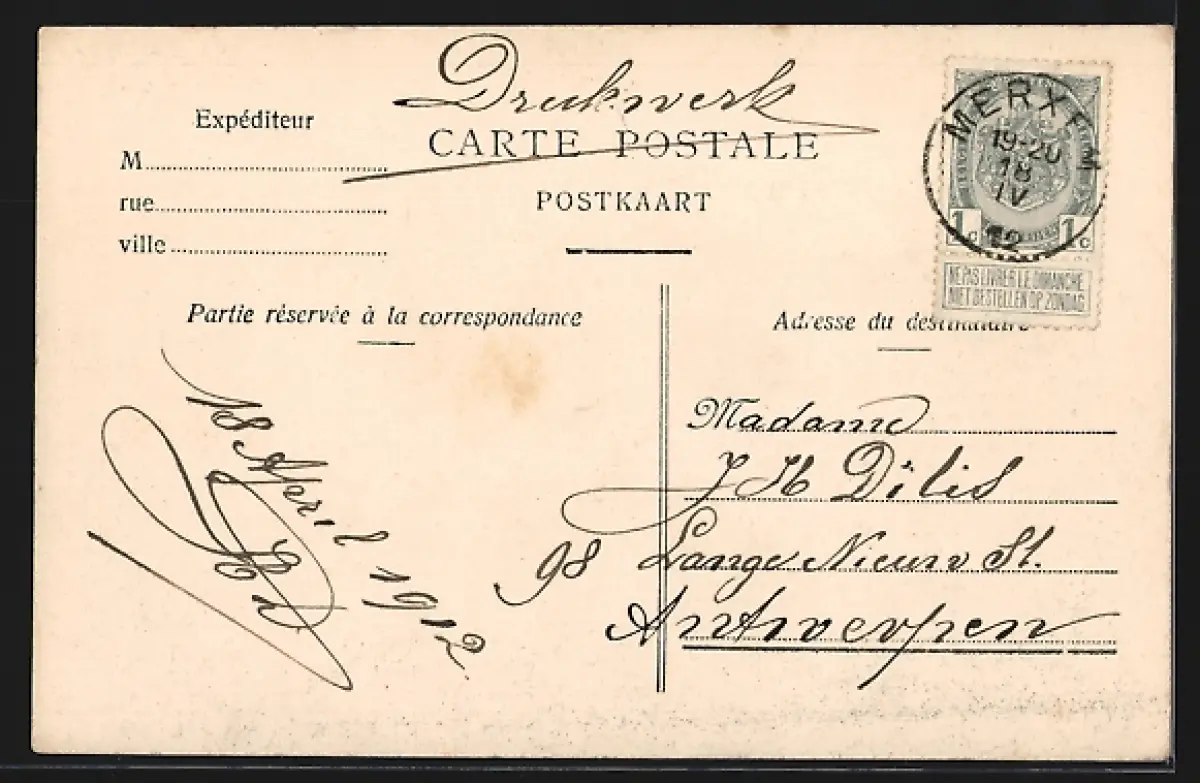 Drukwerk
Expéditeur
CARTE POSTALE
M
POSTKAART
rue
ville
MERXEM
19-20
18
IV
12
1c 1c
NE PAS LIVRER LE DIMANCHE
NIET BESTELLEN OP ZONDAG
Partie réservée à la correspondance
Adresse du destinataire
18 April 1912
Madame
J H Dilis
98 Lange Nieuw St.
Antwerpen